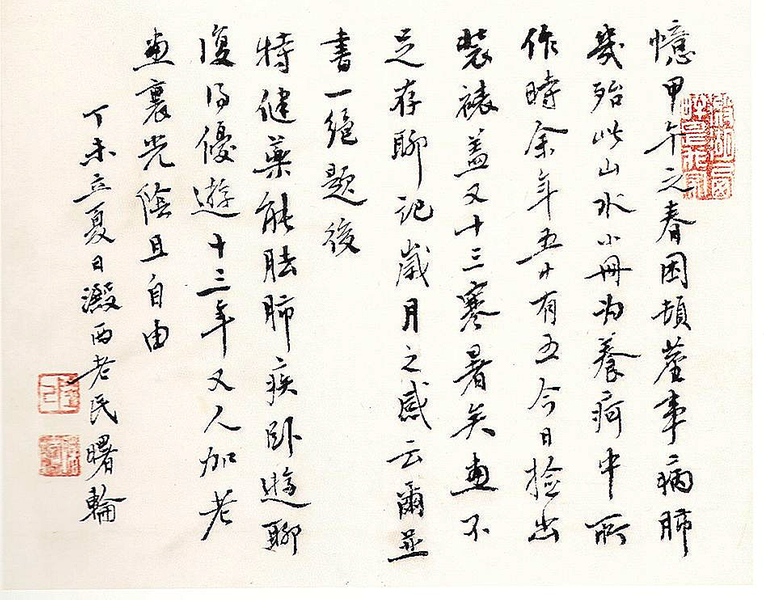 憶甲午之春困頓塵事病肺
幾殆此山水小冊为養疴中所
作時余年五十有五今日撿出
裝裱蓋又十三寒暑矣畫不
足存聊記歲月之感云爾並
書一絕題後
特健藥能祛肺疾卧遊聊
復得優遊十三年又人加老
畫裏光陰且自由
丁未立夏日澱西老民曙輪